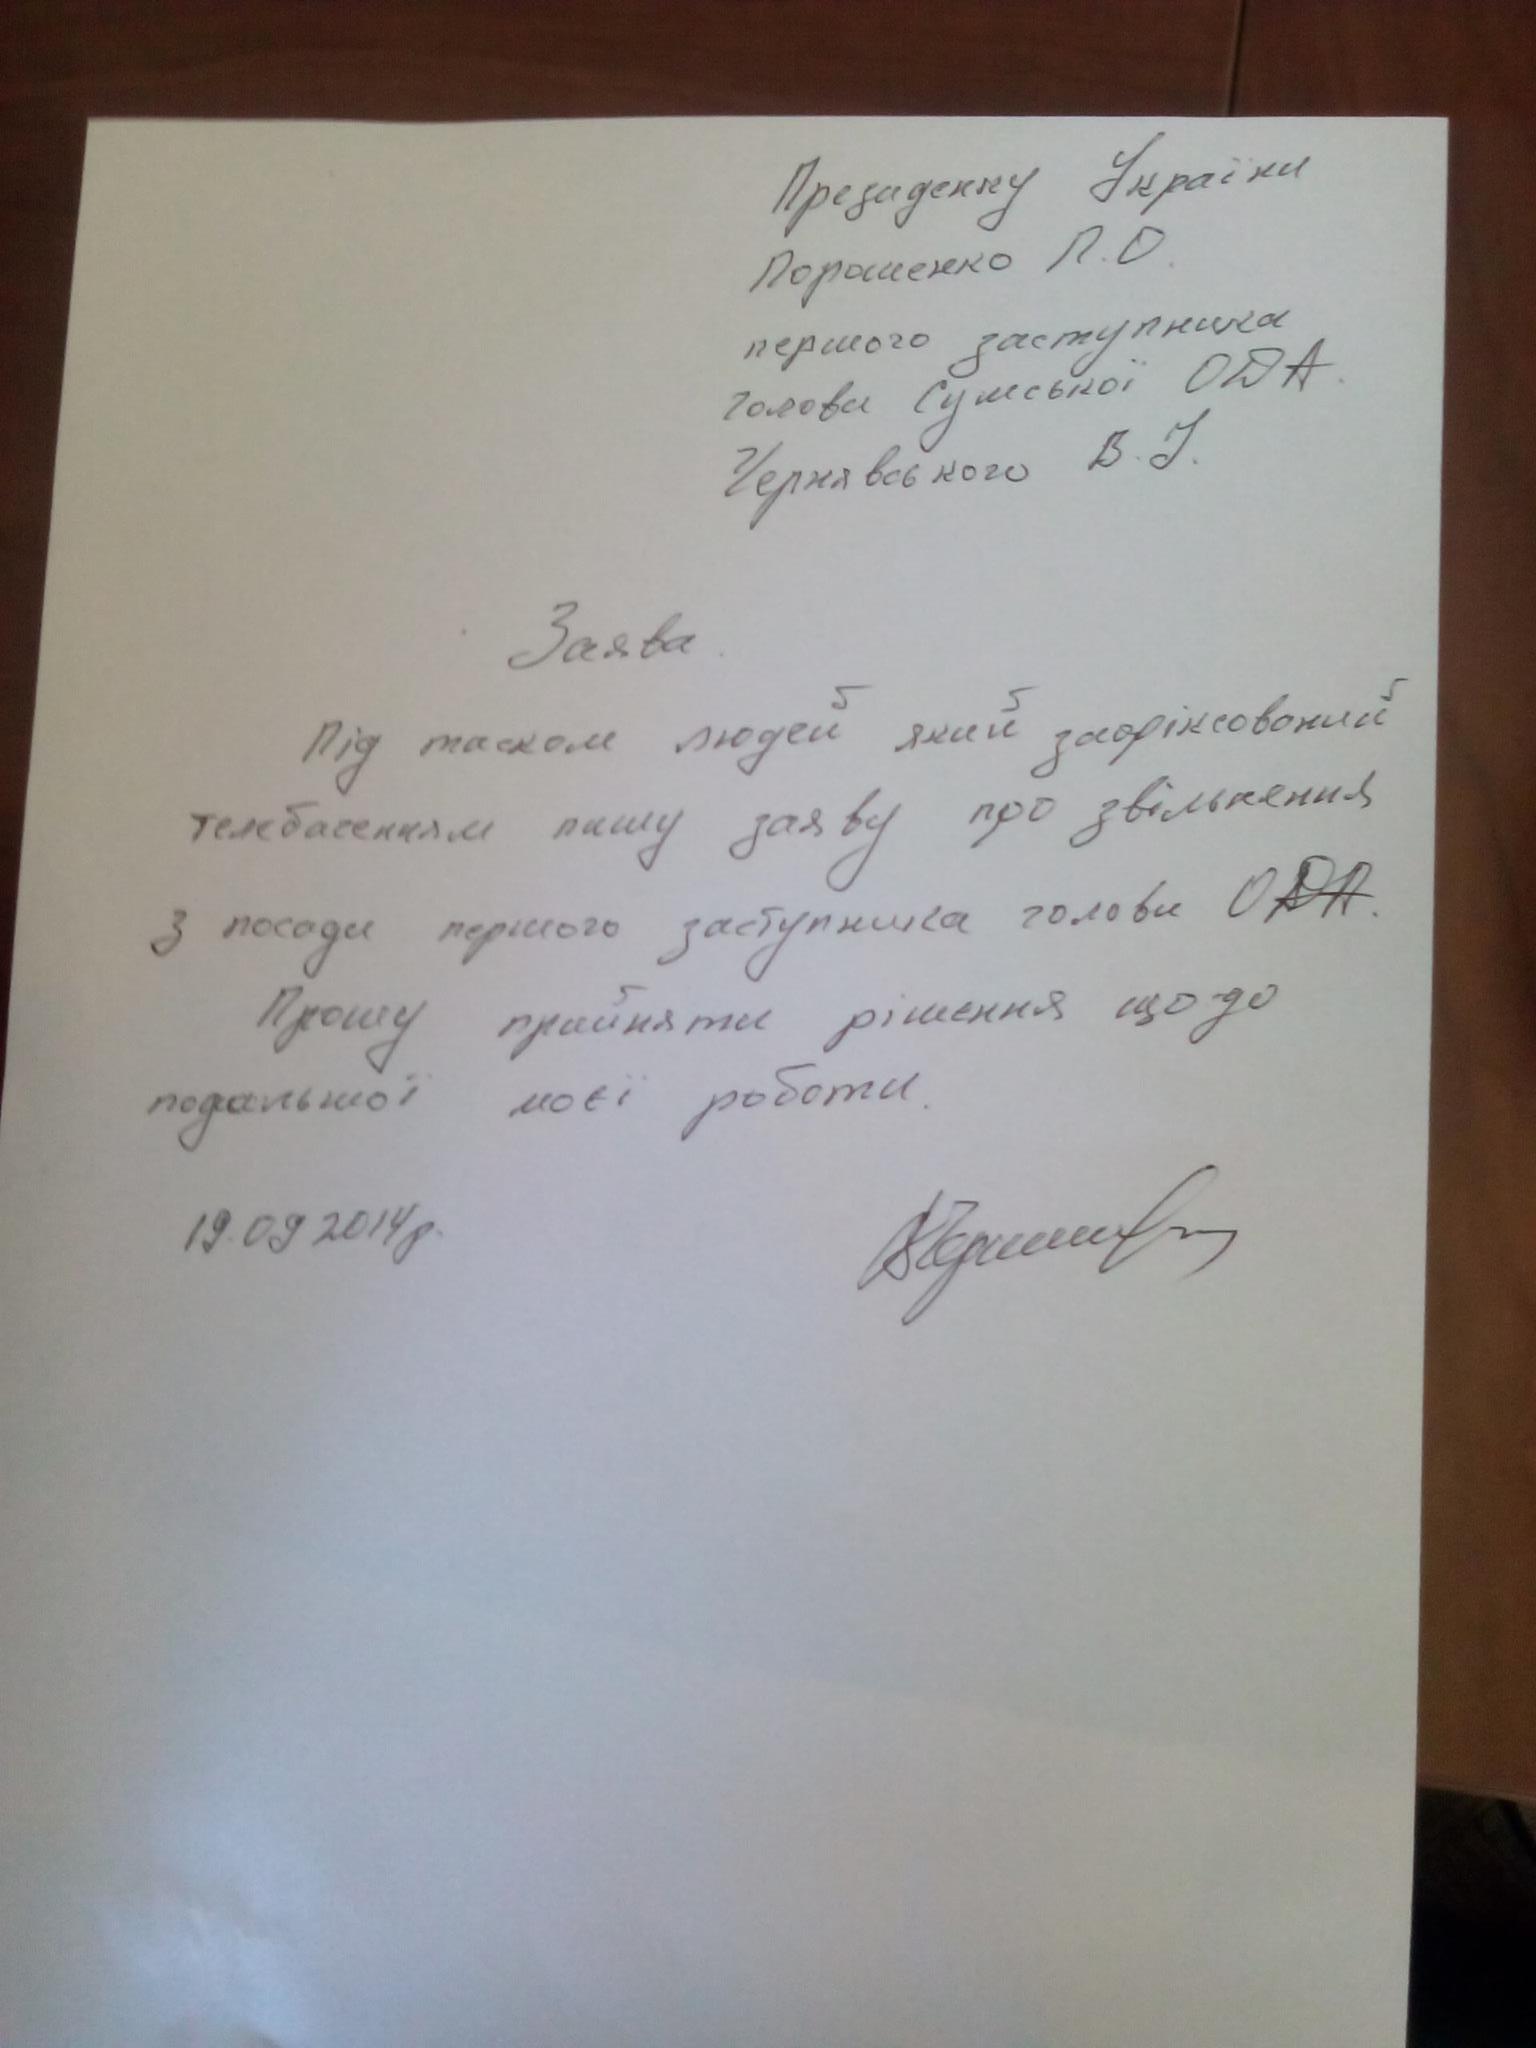 Президенту України
Порошенко П.О.
першого заступника
голови Сумської ОДА.
Чернявського В.І.
Заява.
Під тиском людей який зафіксований
телебаченням пишу заяву про звільнення
з посади першого заступника голови ОДА.
Прошу прийняти рішення що-до
подальшої моєї роботи.
19.09 2014р.